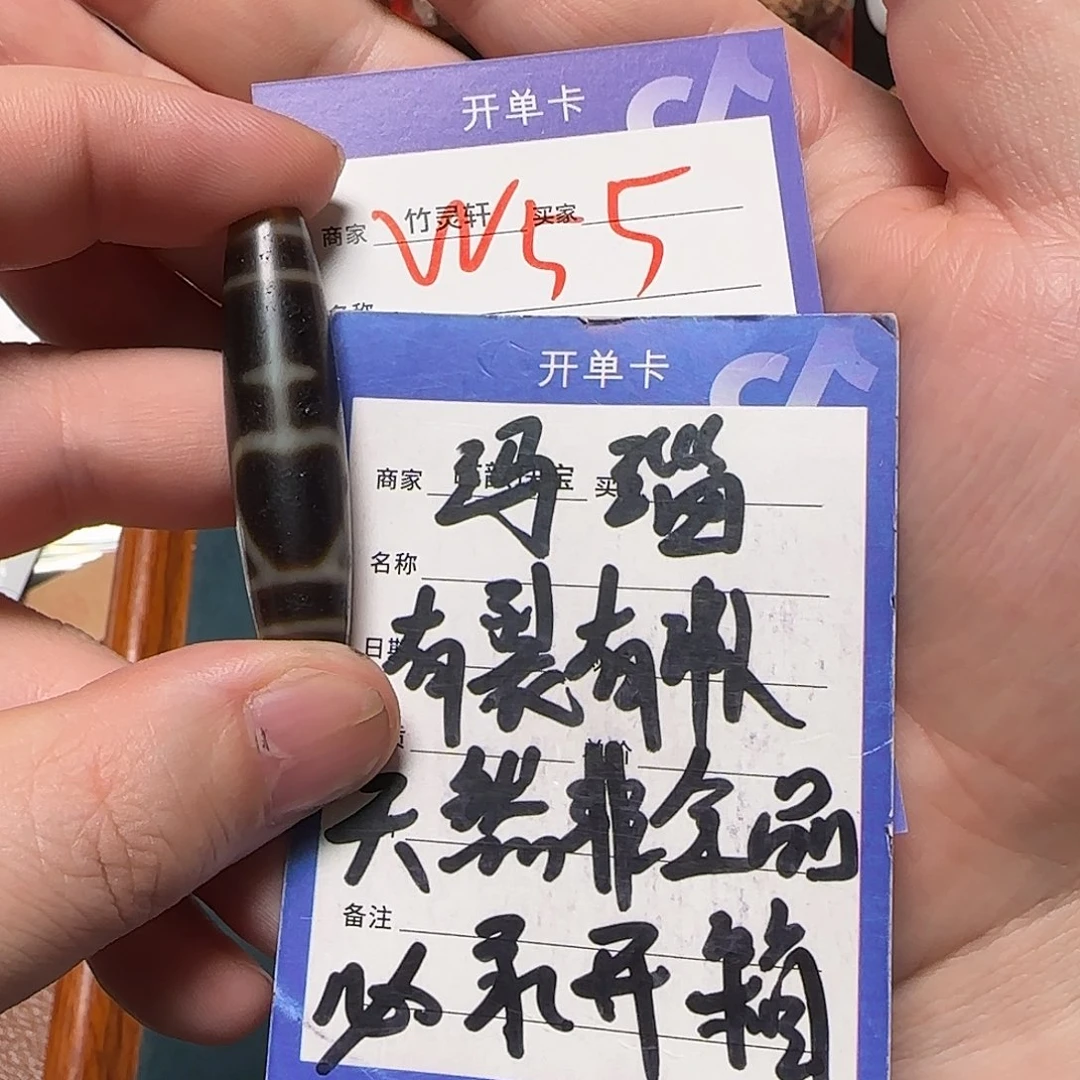 开单卡
商家 竹灵轩 买家
W55
名称
开单卡
商家 宝 买
玛瑙
名称
有裂有纹
日期
天然非全品
备注
必录开箱